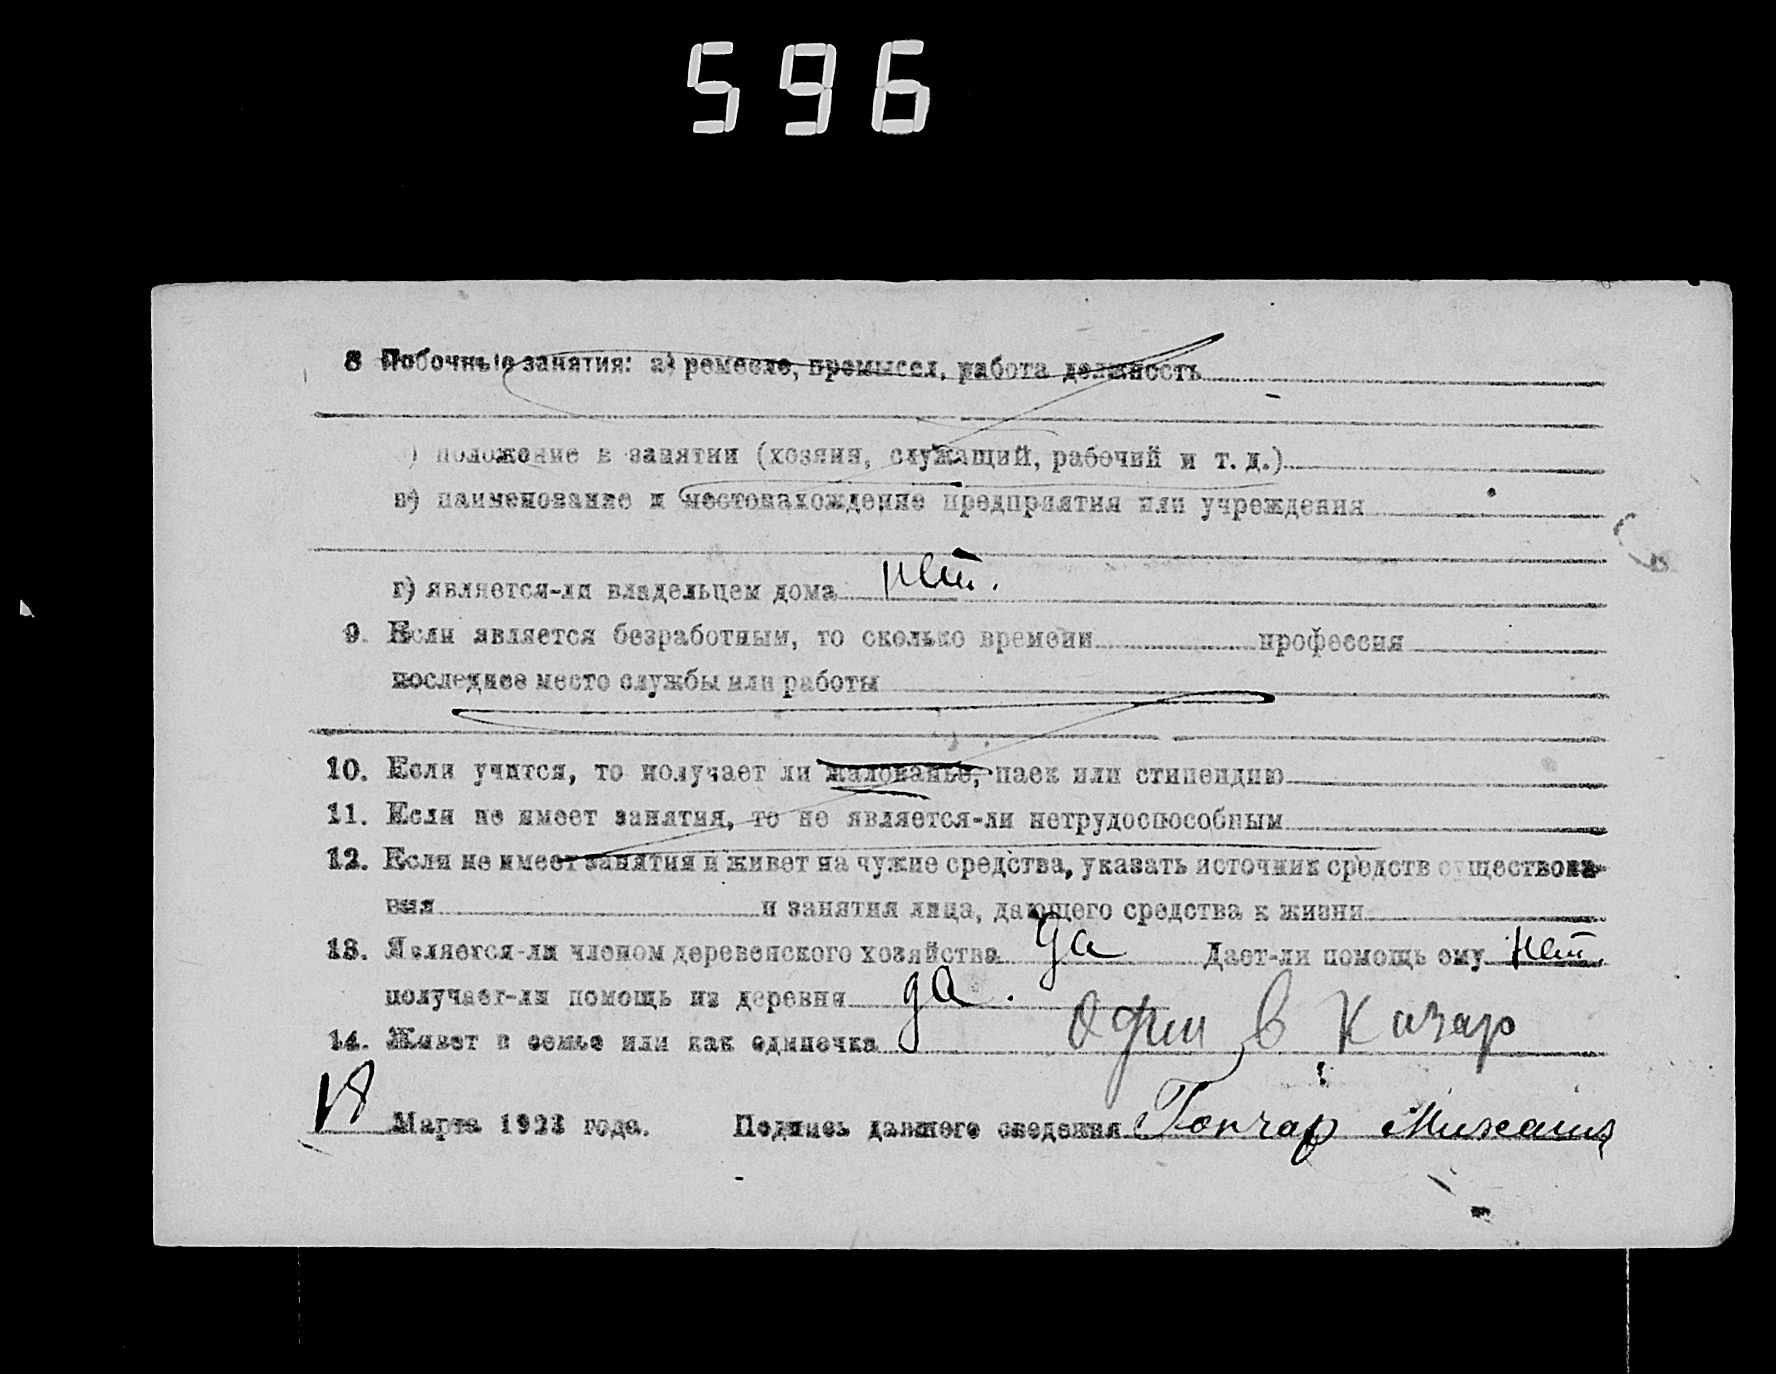 596
8 Побочные занятия: а) ремесло, промысел, работа должность
) положение в занятии (хозяин, служащий, рабочий и т. д.)
в) наименование и местонахождение предприятия или учреждения
г) является-ли владельцем дома нет.
9. Если является безработным, то сколько времени профессия
последнее место службы или работы
10. Если учится, то получает ли жалованье, паек или стипендию
11. Если не имеет занятия, то не является-ли нетрудоспособным
12. Если не имеет занятия и живет на чужие средства, указать источник средств существова-
ния и занятия лица, дающего средства к жизни
13. Является-ли членом деревенского хозяйства да Дает-ли помощь ему нет.
получает-ли помощь из деревни да.
14. Живет в семье или как одиночка один в казар
Марта 1923 года. Подпись давшего сведения Гончар Михаил